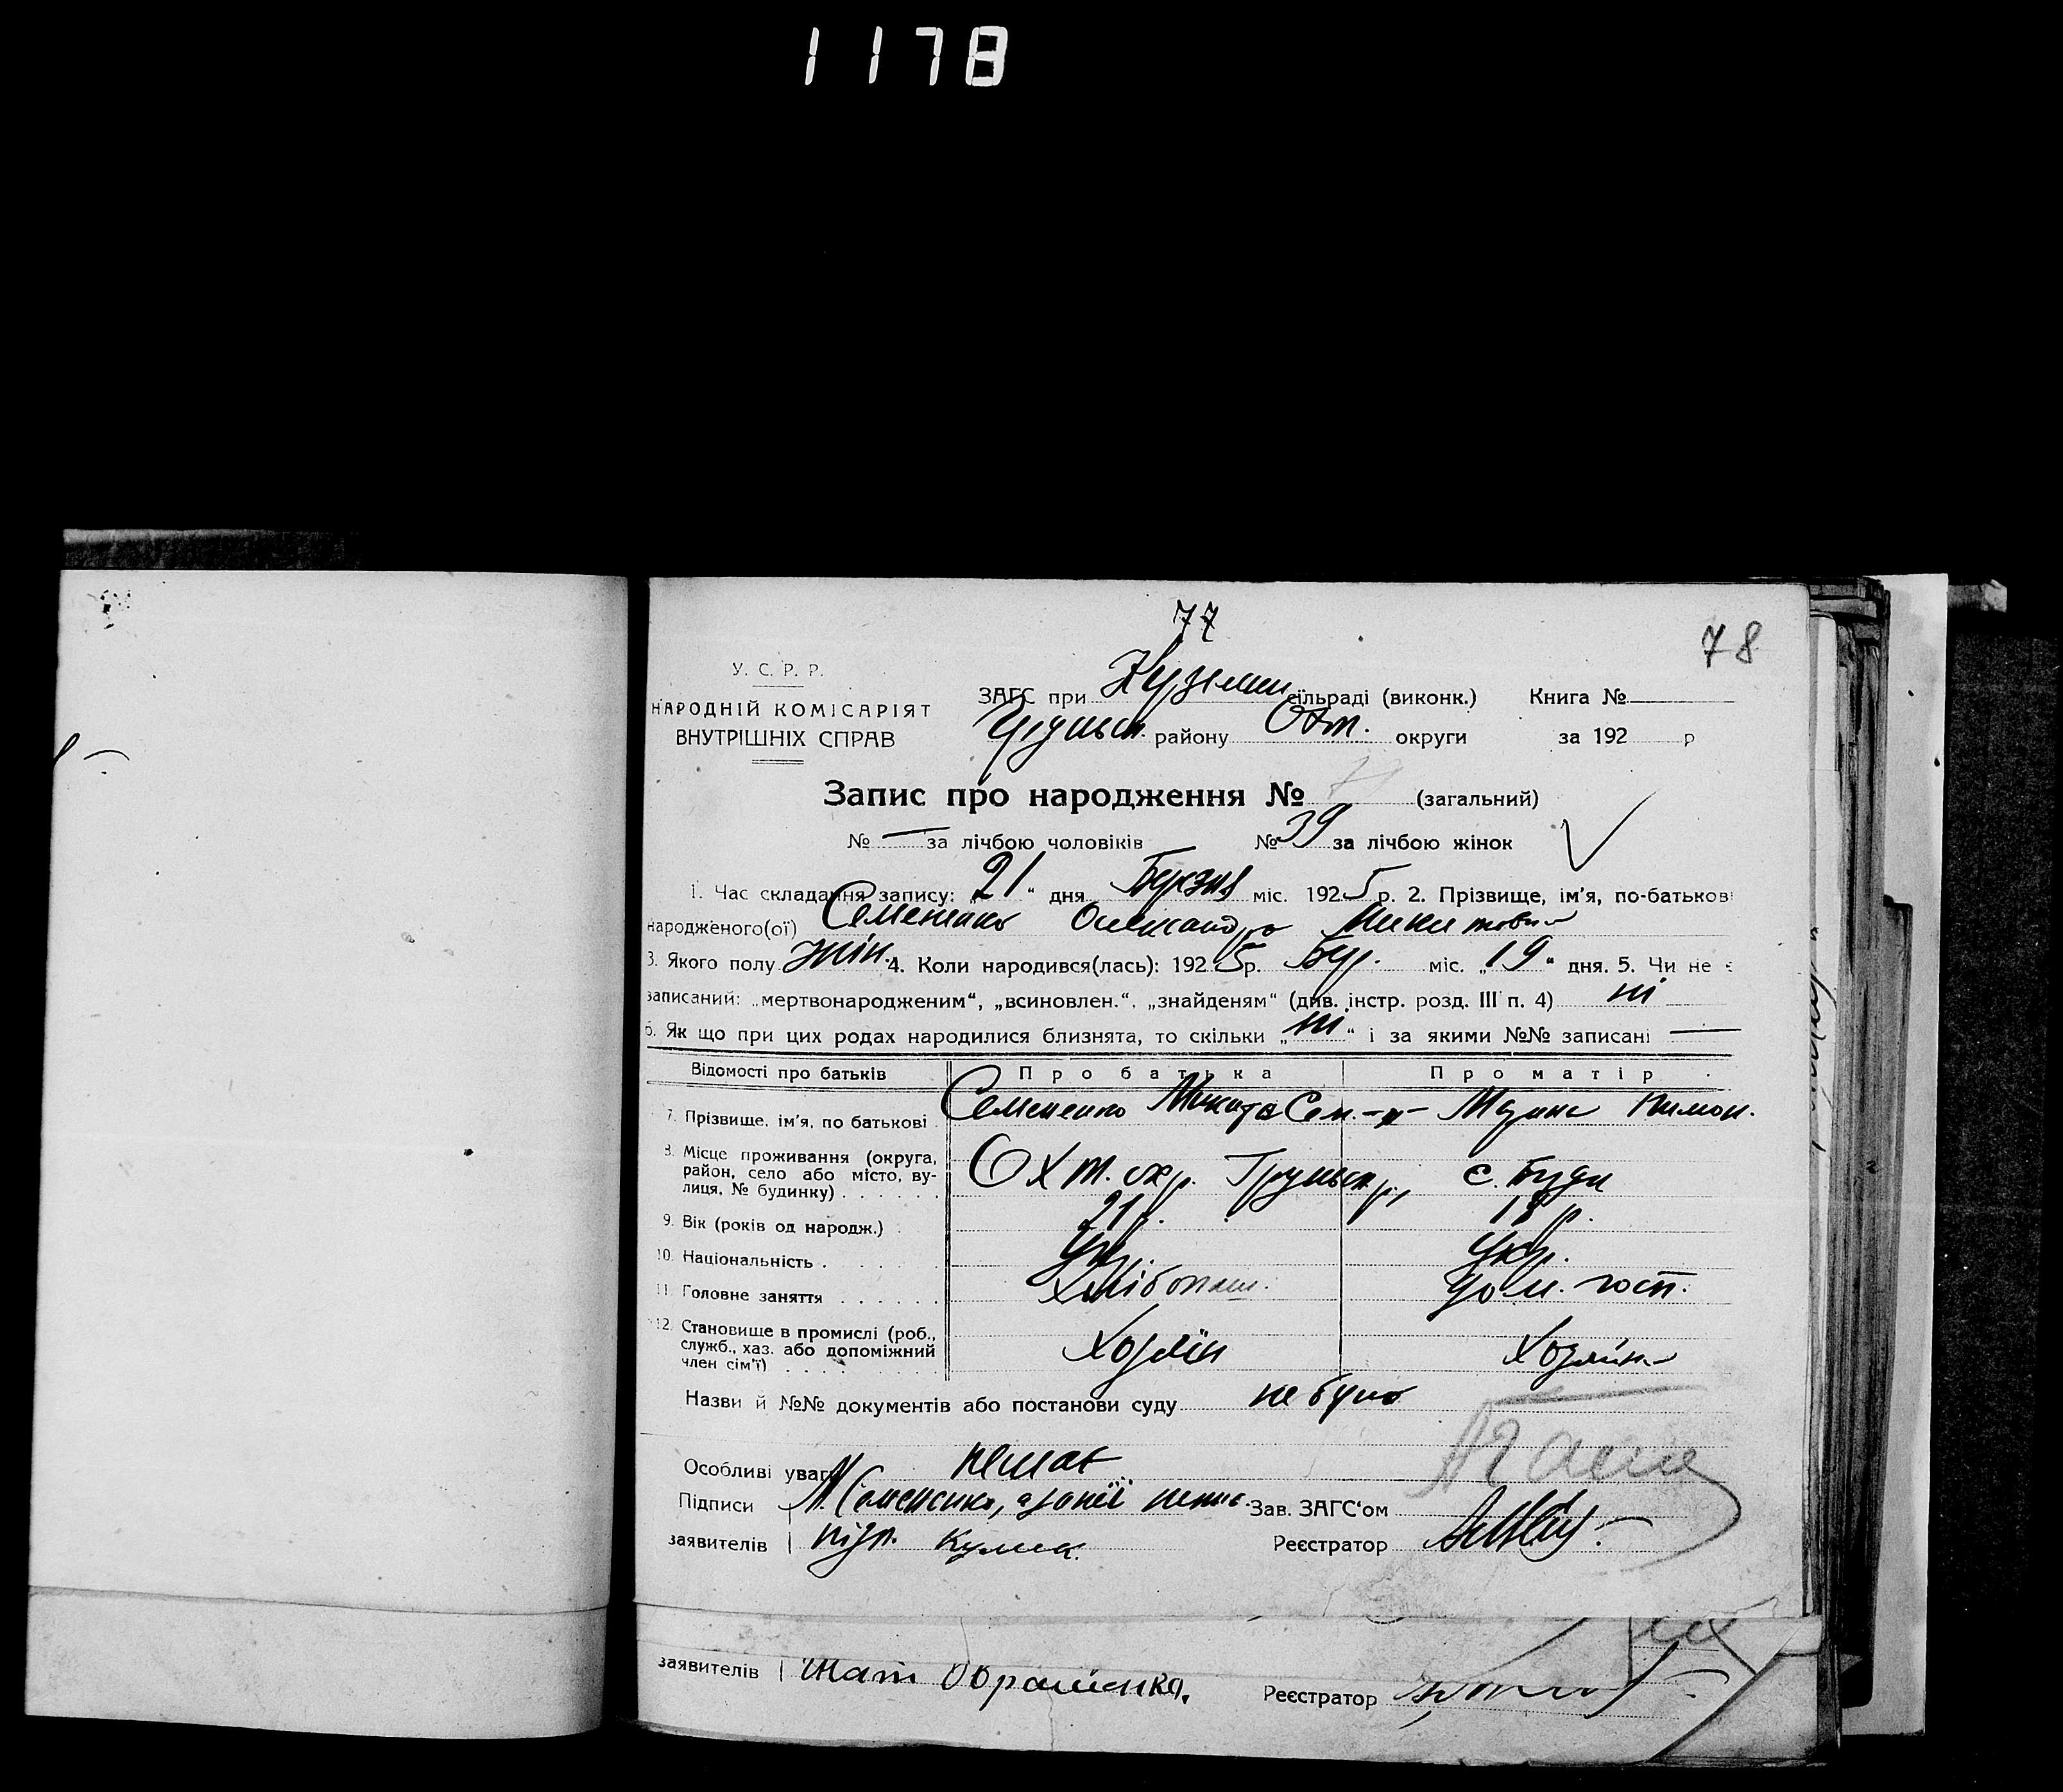 1178
77
78
У. С. Р. Р.
НАРОДНІЙ КОМІСАРІЯТ
ВНУТРІШНІХ СПРАВ
ЗАГС при Куземин сільраді (виконк.) Книга №
району Охт. округи за 192 р
Запис про народження № (загальний)
№ — за лічбою чоловіків № 39 за лічбою жінок
1. Час складання запису: „21“ дня Березня міс. 1925 р. 2. Прізвище, ім'я, по-батькові
народженого(ої) Семененко Олександра Микитовна
3. Якого полу жін. 4. Коли народився(лась): 1925 р. Бер. міс. „19“ дня. 5. Чи не є
записаний: „мертвонародженим“, „всиновлен.“, „знайденям“ (див. інстр. розд. III п. 4) ні
6. Як що при цих родах народилися близнята, то скільки „ні“ і за якими №№ записані —
Відомості про батьків Про батька Про матір
7. Прізвище, ім'я, по батькові Семененко Микита Сем. -//- Пимон.
8. Місце проживання (округа,
район, село або місто, ву-
лиця, № будинку) Охт. окр. Груньськ. р., с. Буди
9. Вік (років од народж.) 21 р. 18 р.
10. Національність Укр. Укр.
11. Головне заняття Хлібопаш. дом. госп.
12. Становище в промислі (роб.,
служб., хаз. або допоміжний
член сім'ї) Хозяїн Хозяїн.
Назви й №№ документів або постанови суду не було
Особливі уваги немає
Підписи М. Семененко, а за неї непис. Зав. ЗАГС'ом
заявителів підп. Реєстратор
заявителів Мат Обраменка. Реєстратор